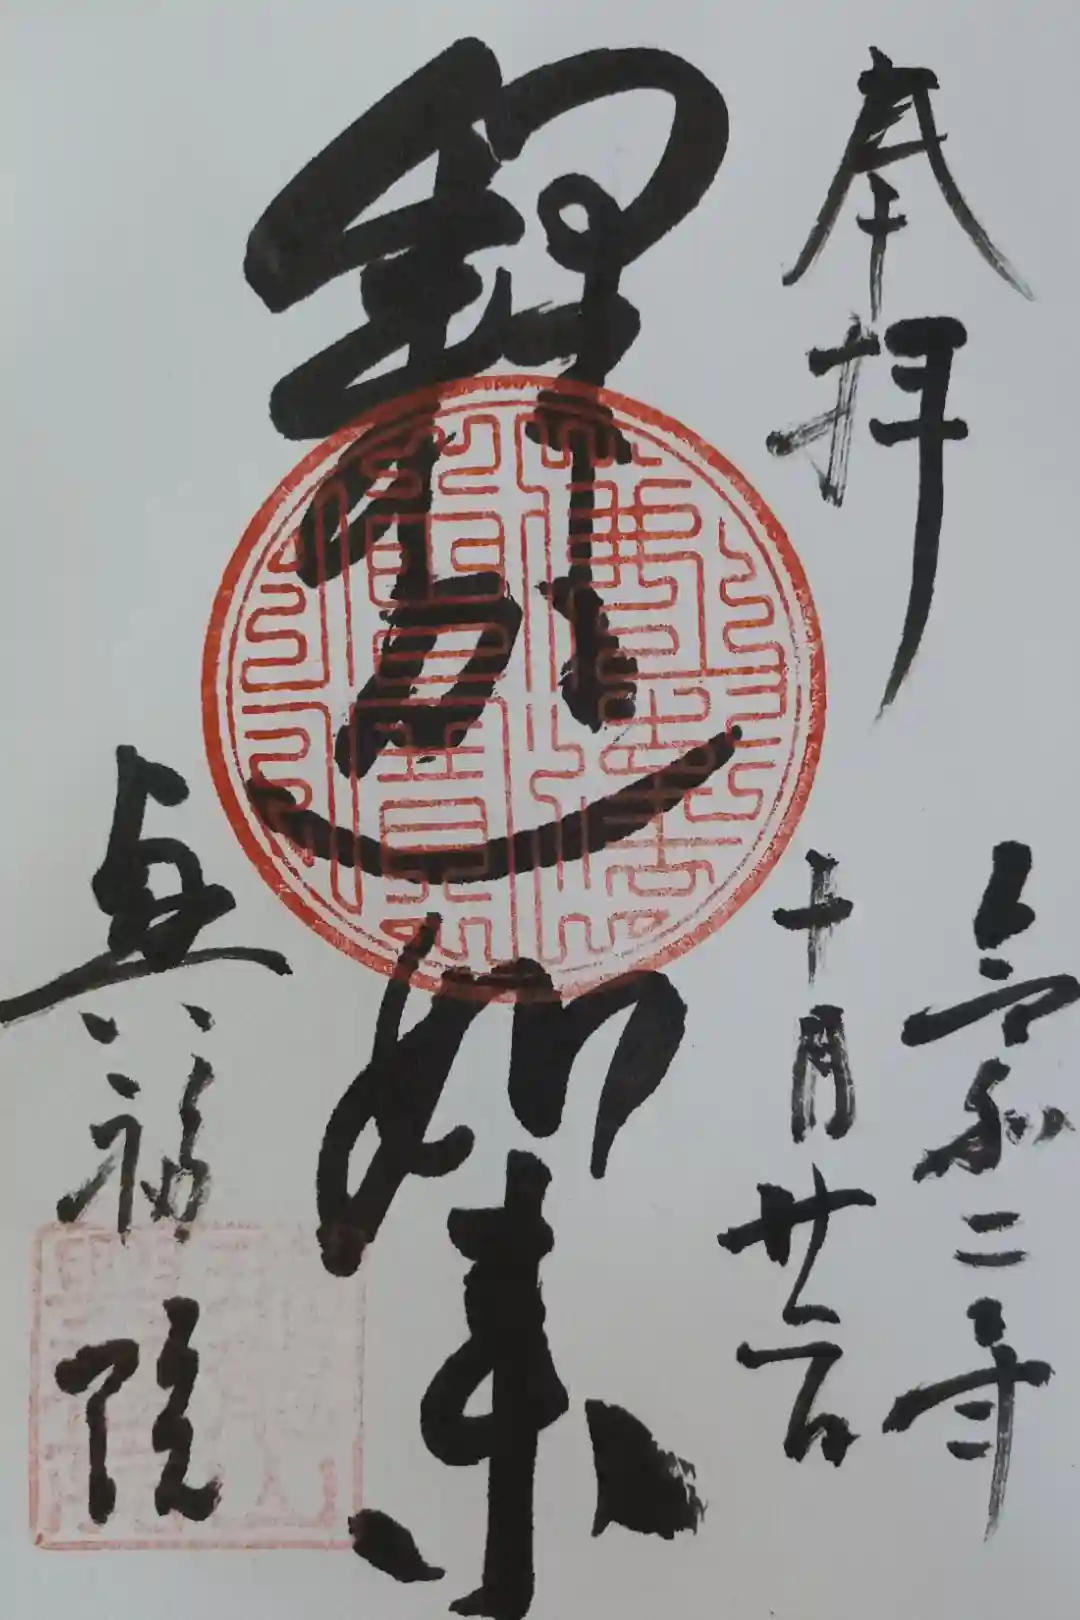 奉拝
令和二年
十月廿一日
釋迦如来
真福院